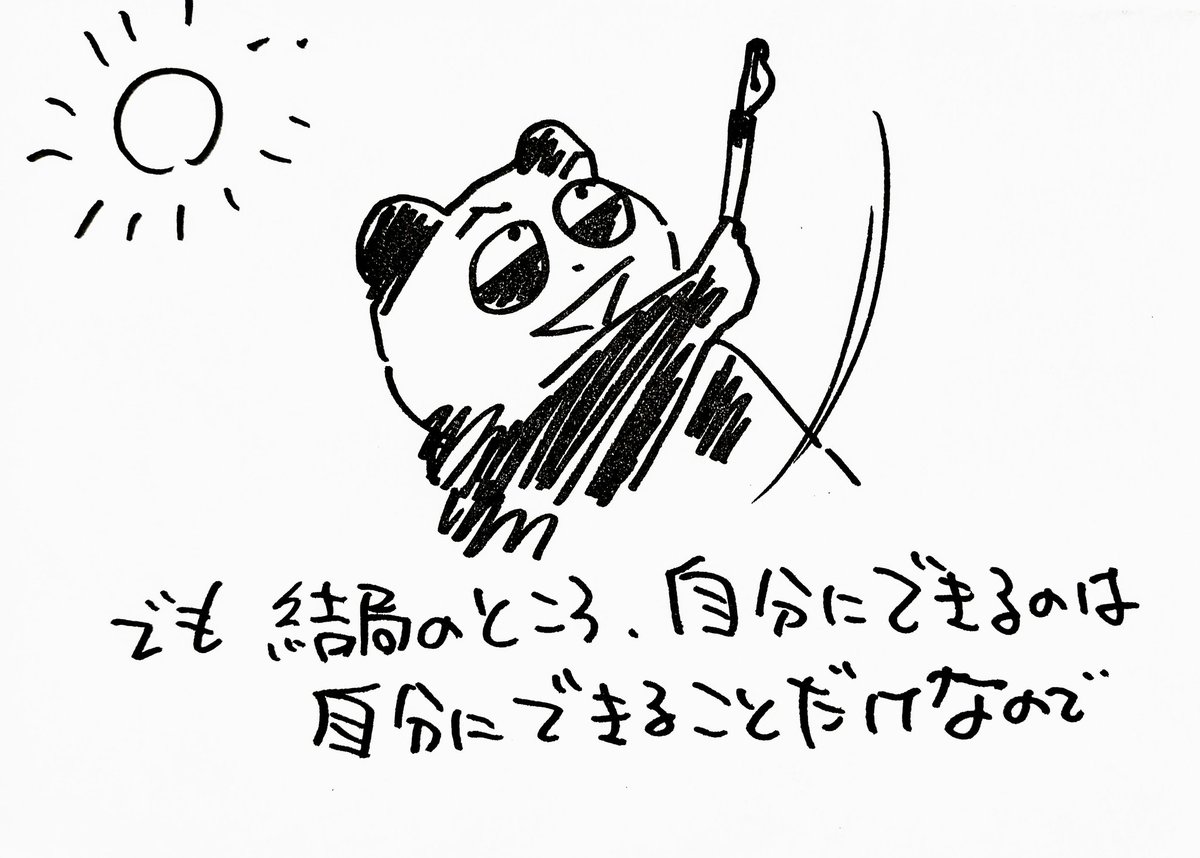 でも 結局のところ、自分にできるのは
自分にできることだけなので